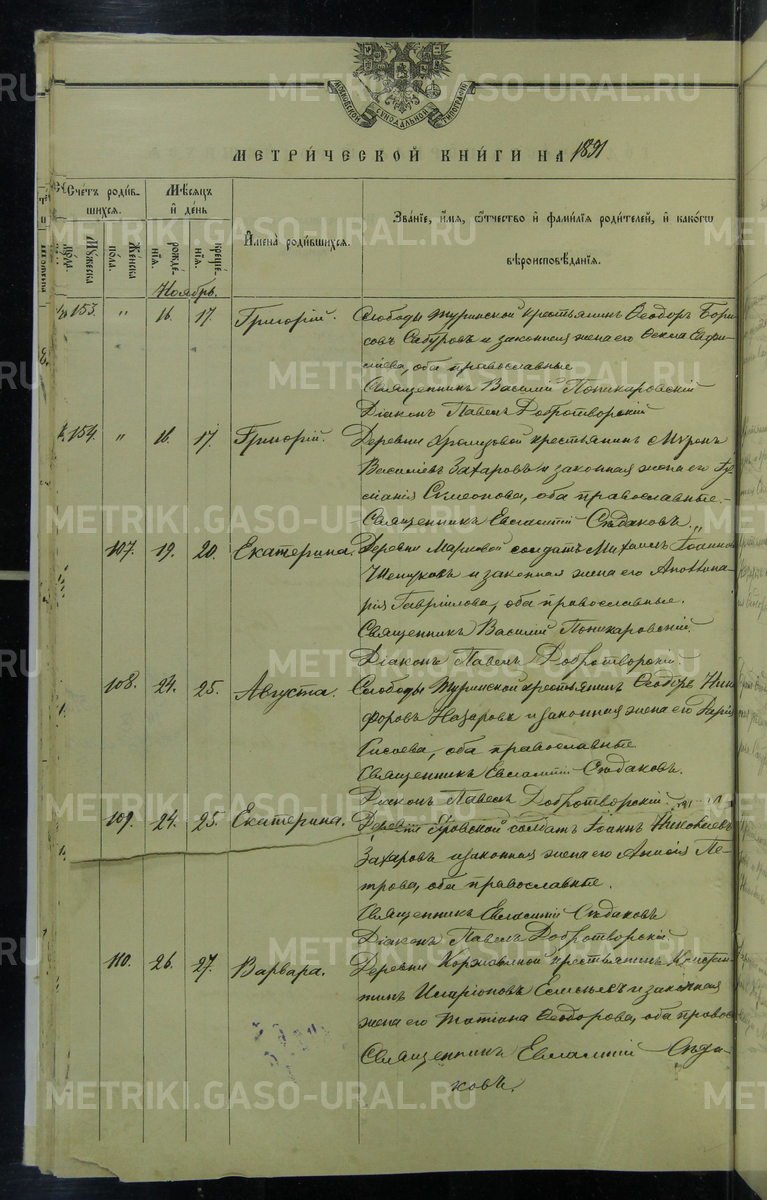 МОСКОВСКОЙ СѴНОДАЛЬНОЙ ТИПОГРАФІИ
МЕТРИ́ЧЕСКОЙ КНИ́ГИ НА 1891
Сче́тъ роди́в-
шихся.
Мѣ́сяцъ
и҆ де́нь
И҆мена̀ роди́вшихся.
Зва́ніе, и҆́мя, ѻ҆́тчество и҆ фами́лія роди́телей, и҆ како́гѡ
вѣроисповѣ́данія.
Мꙋ́жеска
по́ла.
Же́нска
по́ла.
рожде́-
нія.
креще́-
нія.
Ноябрь.
153. " 16. 17. Григорій. Слободы Туринской крестьянинъ Ѳеодоръ Бори-
совъ Сабуровъ и законная жена его Ѳекла Евфи-
міева, оба православные
Священникъ Василій Поникаровскій
Діаконъ Павелъ Добротворскій
154. " 16. 17. Григорій. Деревни Храмцовой крестьянинъ Миронъ
Василіевъ Захаровъ и законная жена его
Симеонова, оба православные.
Священникъ Евлампій Сѣдаковъ.
107. 19. 20. Екатерина. Деревни Марковой солдатъ Михаилъ Іоанновъ
и законная жена его Аполлина-
рія Гавріилова, оба православные.
Священникъ Василій Поникаровскій.
Діаконъ Павелъ Добротворскій.
108. 24. 25. Августа. Слободы Туринской крестьянинъ Ѳеодоръ Ники-
форовъ Назаровъ и законная жена его Дарія
оба православные
Священникъ Евлампій Сѣдаковъ.
Діаконъ Павелъ Добротворскій.
109. 24. 25. Екатерина. Деревни солдатъ Іоаннъ Николаевъ
Захаровъ и законная жена его Анисія Пе-
трова, оба православные.
Священникъ Евлампій Сѣдаковъ
Діаконъ Павелъ Добротворскій.
110. 26. 27. Варвара. Деревни Коржавиной крестьянинъ Констан-
тинъ Иларіоновъ и законная
жена его Татіана Ѳеодорова, оба правос
Священникъ Евлампій Сѣда-
ковъ.
METRIKI.GASO-URAL.RU